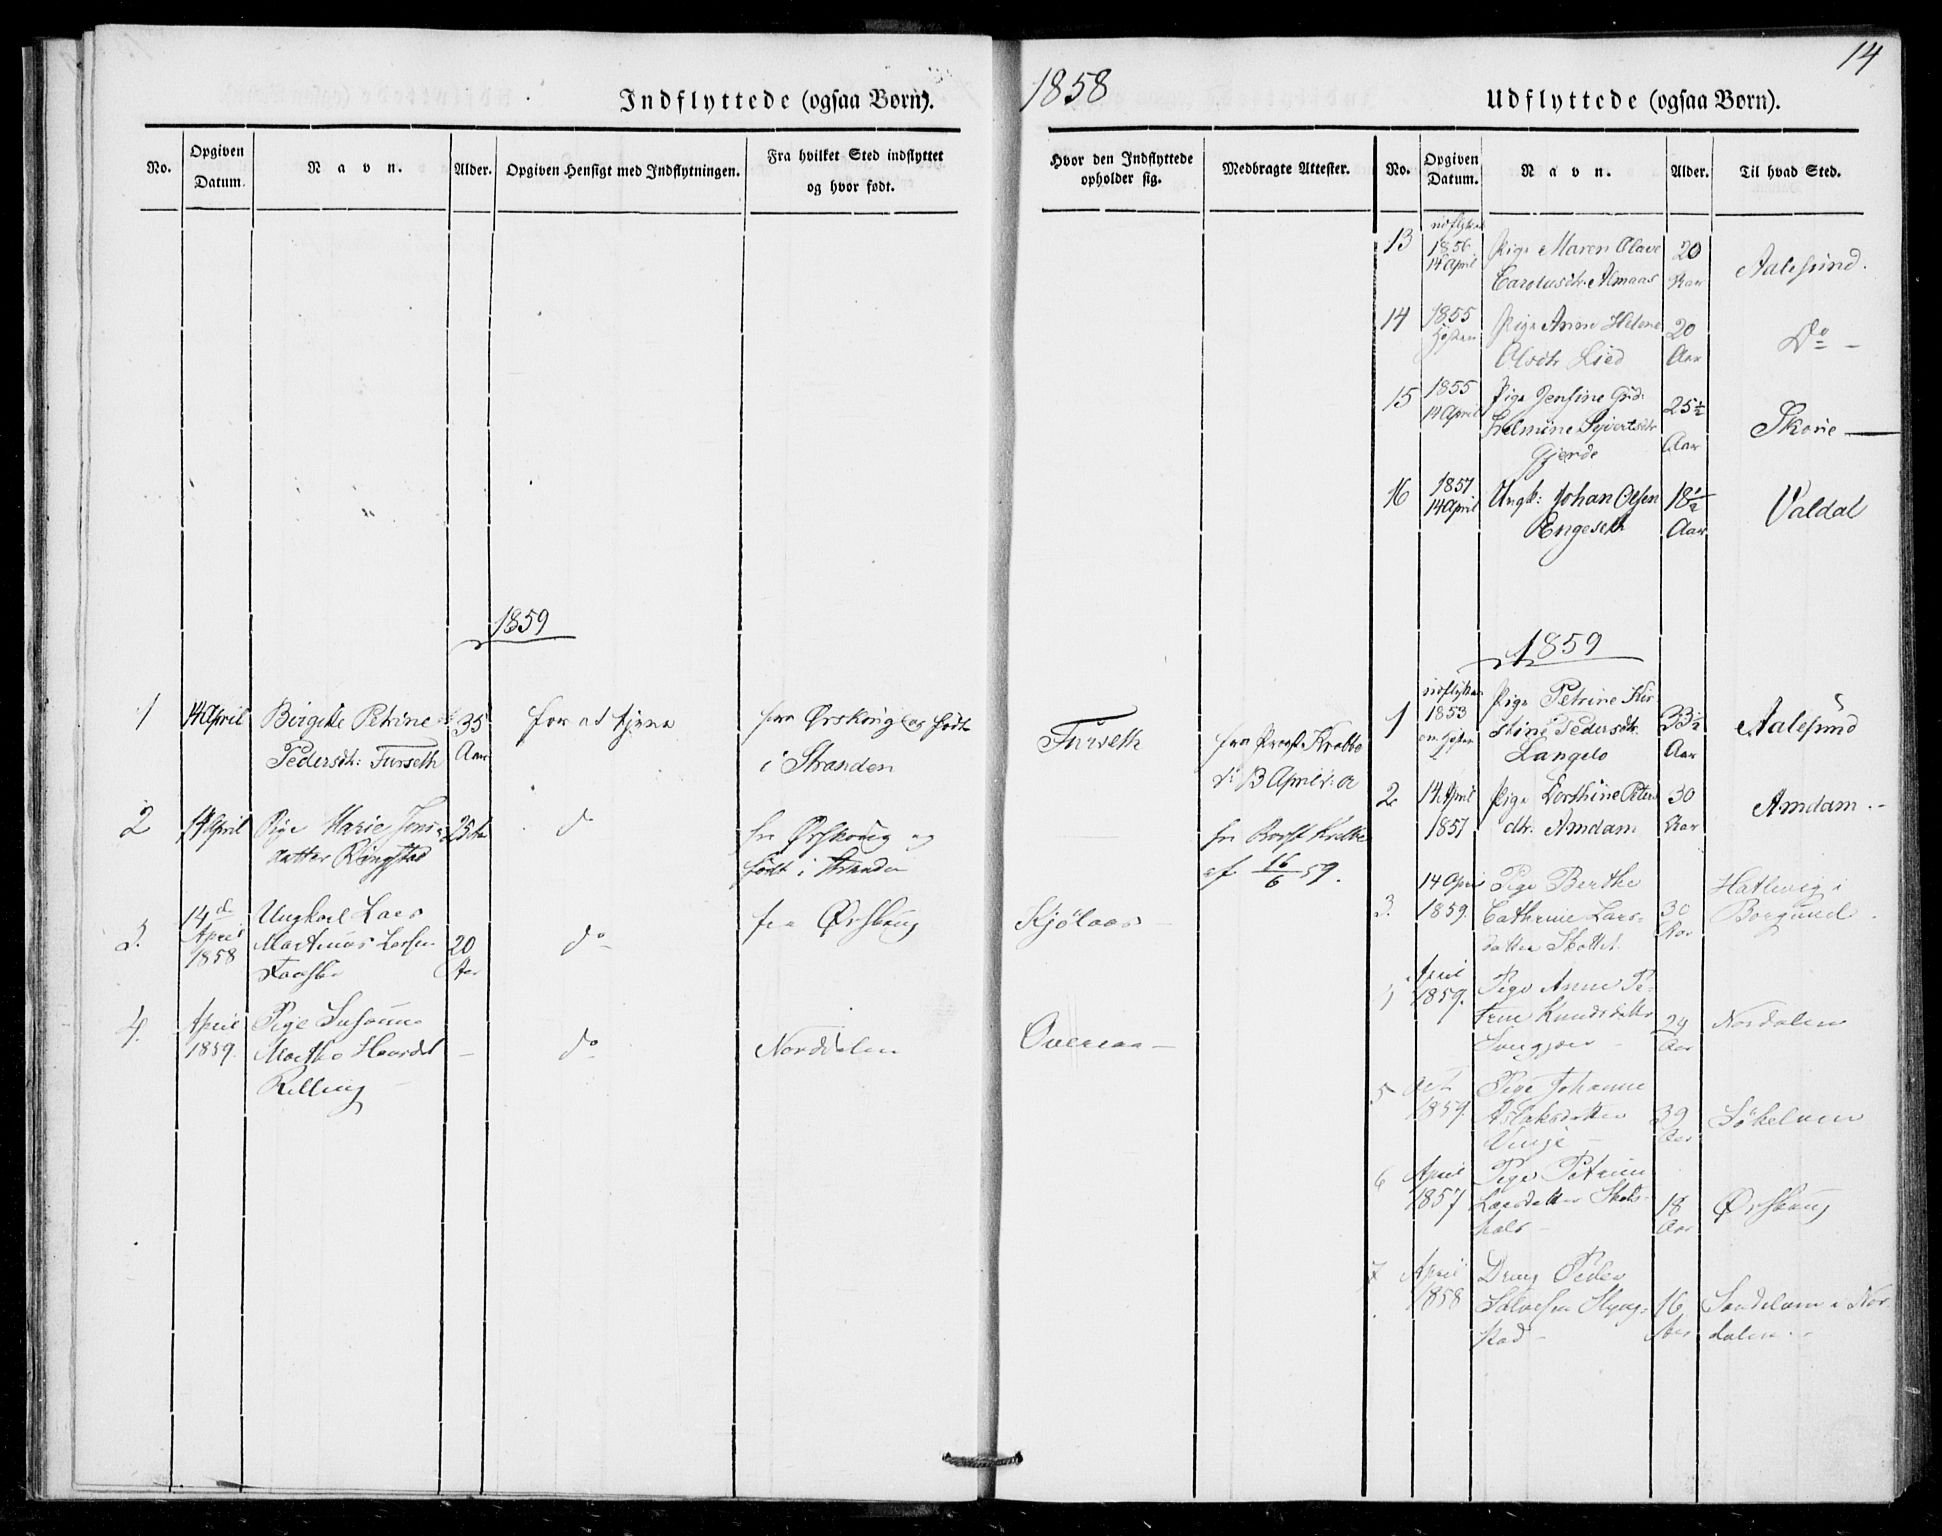 14
1858
Indflyttede (ogsaa Børn).
No.
Opgiven
Datum.
Navn.
Alder.
Opgiven Hensigt med Indflytningen.
Fra hvilket Sted indflyttet
og hvor født.
1859
1
14 April
Birgitte Petrine
Pedersdtr: Furseth
35
Aar
for at tjene
fra Ørskoug og født
i Stranden
2
14 April
Pige Marie Jens-
datter Ringstad
25 Aar
do
fra Ørskoug og
født i Stranden
3.
14de
April
1858
Ungkarl Lars
Martinus Larsen
20
Aar
do
fra Ørskoug
4.
April
1859.
Pige Susanne
Marthe
Relling
–
do
Norddalen
Hvor den Indflyttede
opholder sig.
Medbragte Attester.
Furseth
fra Krabbe
13 April
fra Krabbe
af 16/6 59.
Kjølaas –
Overaae –
Udflyttede (ogsaa Børn).
No.
Opgiven
Datum.
Navn.
Alder.
Til hvad Sted.
13
1856
14 April
Pige Maren Olave
Carolusdtr. Almaas
20
Aar
Aalesund.
14
1855
Høsten
Pige Anne Helene
Olsdtr Lied
20
Aar
Do –
15
1855
14 April
Pige Jensine
Sivertsdtr
Gjerde
25½
Aar
Skovie –
16
1857
14 April
Ungk: Johan Olsen
Engeseth
18½
Aar
Valdal
1859
1
1853
Pige Petrine Kir-
stine Pedersdtr.
Langelo
33½
Aar
Aalesund
2
14 April
1857
Pige Dorthine Peters
dtr. Amdam
30
Aar
Amdam –
3.
14 April
1859.
Pige Berthe
Cathrine Lars-
datter Skottet
30
Aar
Hatlevig i
Borgund.
April
1859.
Pige Anne Pe-
trine Knudsdatter
29
Aar
Nordalen
5
Oct
1859.
Pige Johanne
Aslaksdatter
Vinje –
39
Aar
Søkelven
6
April
1857
Pige Petrine
Larsdatter Skots-
hals –
18
Aar
Ørskoug
7
April
1858
Dreng Peder
stad –
16
Aar
i Nor-
dalen –